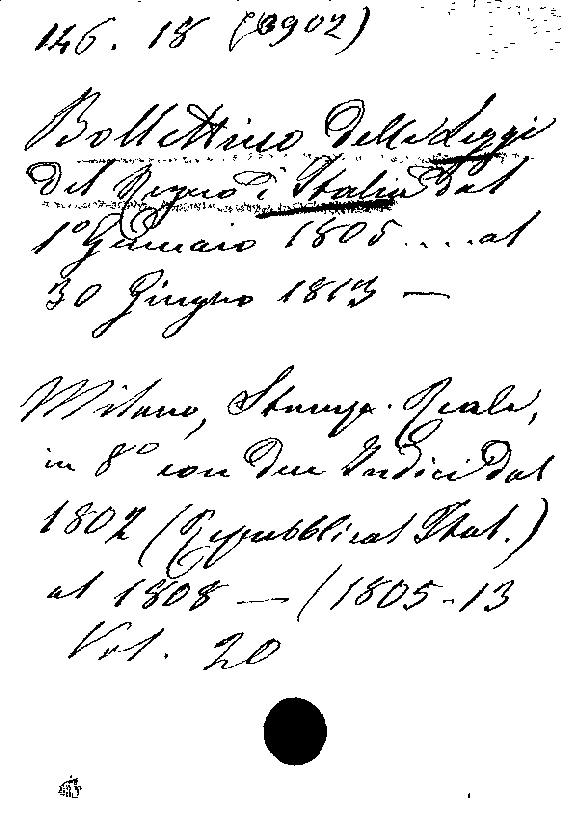 146. 18 (3902)
Bollettino delle Leggi
del Regno d'Italia dal
1º Gennaio 1805 .... al
30 Giugno 1813 —
Milano, Stamp. Reale,
in 8º con due Indici dal
1802 (Repubblica Ital.)
al 1808 — (1805-13
Vol. 20